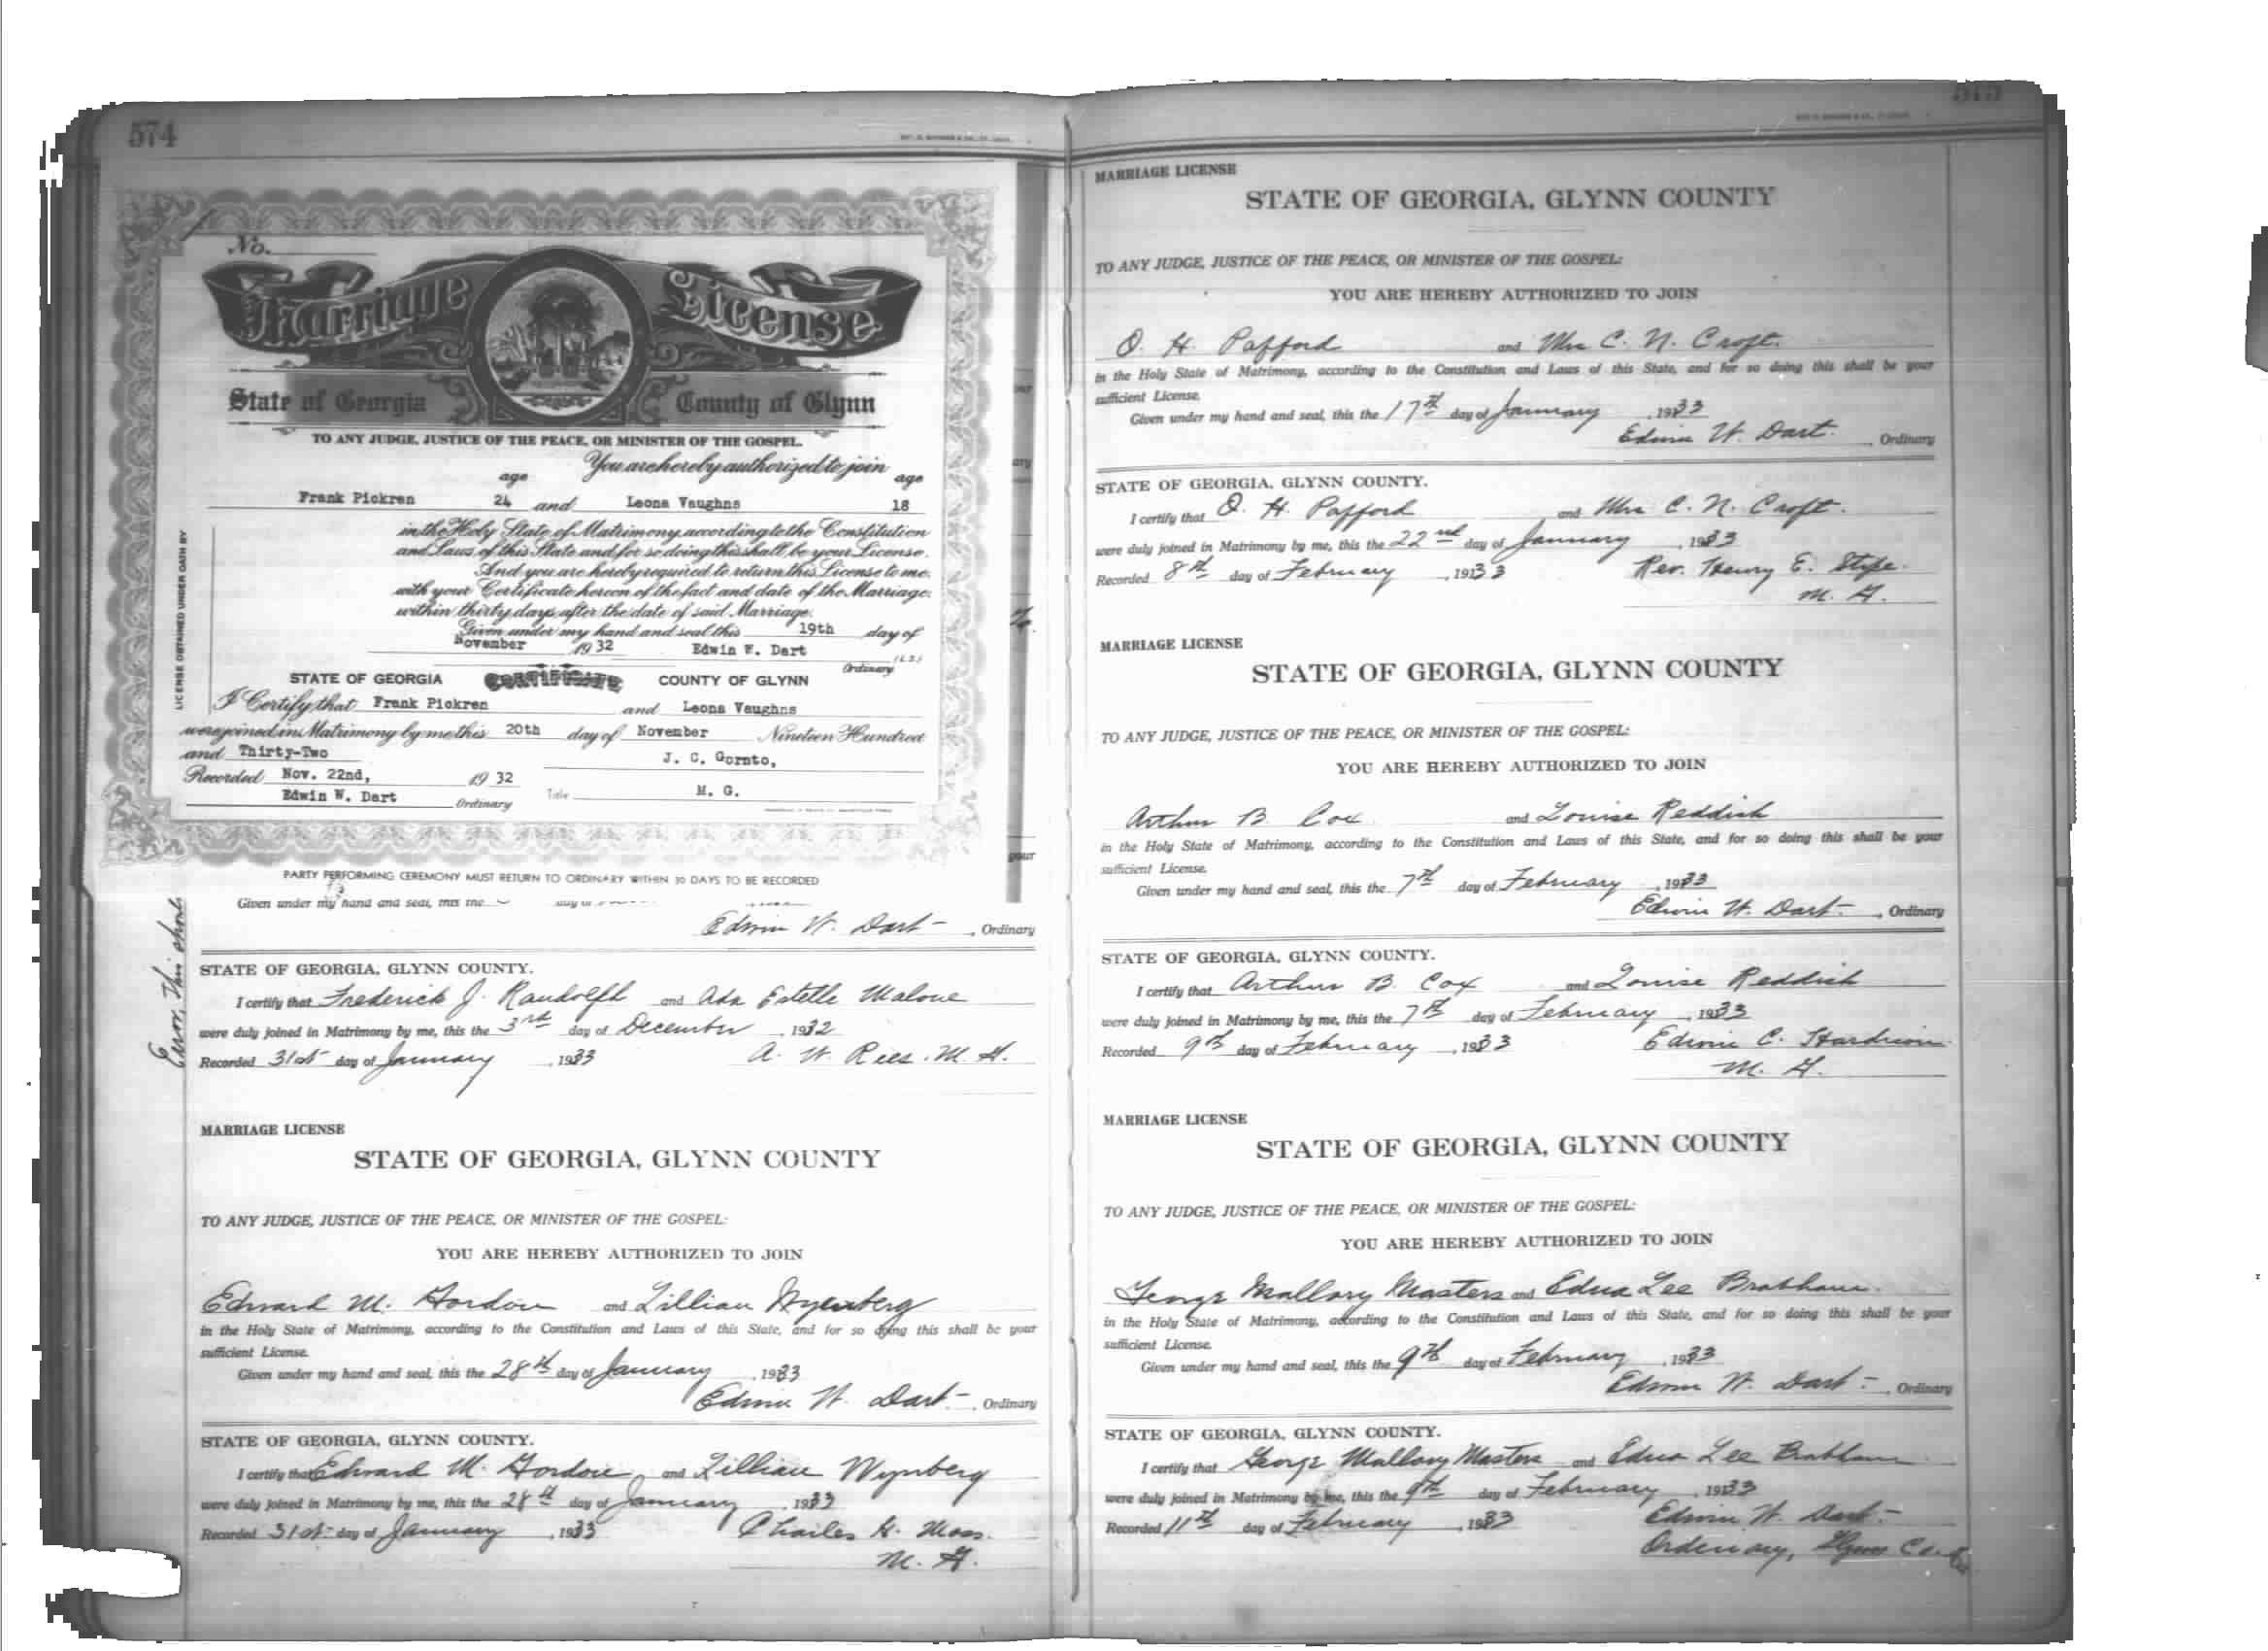 574
No.
Marriage License
State of Georgia County of Glynn
TO ANY JUDGE, JUSTICE OF THE PEACE, OR MINISTER OF THE GOSPEL.
You are hereby authorized to join
age age
Frank Pickren 24 and Leona Vaughns 18
in the Holy State of Matrimony according to the Constitution
and Laws of this State and for so doing this shall be your License.
And you are hereby required to return this License to me,
with your Certificate hereon of the fact and date of the Marriage,
within thirty days after the date of said Marriage.
Given under my hand and seal this 19th day of
November 1932 Edwin W. Dart (L.S.)
Ordinary
LICENSE OBTAINED UNDER OATH BY
STATE OF GEORGIA CERTIFICATE COUNTY OF GLYNN
I Certify that Frank Pickren and Leona Vaughns
were joined in Matrimony by me this 20th day of November Nineteen Hundred
and Thirty-Two J. C. Gornto,
Recorded Nov. 22nd, 1932
Edwin W. Dart Ordinary Title M. G.
PARTY PERFORMING CEREMONY MUST RETURN TO ORDINARY WITHIN 30 DAYS TO BE RECORDED
Given under my hand and seal, this the
Edwin W. Dart , Ordinary
Error, This
STATE OF GEORGIA, GLYNN COUNTY.
I certify that Frederick J. Randolph and Ada Estelle Malone
were duly joined in Matrimony by me, this the 3rd day of December , 1932
Recorded 31st day of January , 1933 A. W. Rees. M. G.
MARRIAGE LICENSE
STATE OF GEORGIA, GLYNN COUNTY
TO ANY JUDGE, JUSTICE OF THE PEACE, OR MINISTER OF THE GOSPEL:
YOU ARE HEREBY AUTHORIZED TO JOIN
Edward M. Gordon and Lillian Wynberg
in the Holy State of Matrimony, according to the Constitution and Laws of this State, and for so doing this shall be your
sufficient License.
Given under my hand and seal, this the 28th day of January , 1933
Edwin W. Dart , Ordinary
STATE OF GEORGIA, GLYNN COUNTY.
I certify that Edward M. Gordon, and Lillian Wynberg
were duly joined in Matrimony by me, this the 28th day of January , 1933
Recorded 31st day of January , 1933 Charles H. Moss.
M. G.
575
MARRIAGE LICENSE
STATE OF GEORGIA, GLYNN COUNTY
TO ANY JUDGE, JUSTICE OF THE PEACE, OR MINISTER OF THE GOSPEL:
YOU ARE HEREBY AUTHORIZED TO JOIN
O. H. Pafford and Mrs C. N. Croft.
in the Holy State of Matrimony, according to the Constitution and Laws of this State, and for so doing this shall be your
sufficient License.
Given under my hand and seal, this the 17th day of January , 1933
Edwin W. Dart. , Ordinary
STATE OF GEORGIA, GLYNN COUNTY.
I certify that O. H. Pafford and Mrs C. N. Croft.
were duly joined in Matrimony by me, this the 22nd day of January , 1933
Recorded 8th day of February , 1933 Rev. Henry E. Stipe.
M. G.
MARRIAGE LICENSE
STATE OF GEORGIA, GLYNN COUNTY
TO ANY JUDGE, JUSTICE OF THE PEACE, OR MINISTER OF THE GOSPEL:
YOU ARE HEREBY AUTHORIZED TO JOIN
Arthur B Cox and Louise Reddish
in the Holy State of Matrimony, according to the Constitution and Laws of this State, and for so doing this shall be your
sufficient License.
Given under my hand and seal, this the 7th day of February , 1933
Edwin W. Dart , Ordinary
STATE OF GEORGIA, GLYNN COUNTY.
I certify that Arthur B. Cox and Louise Reddish
were duly joined in Matrimony by me, this the 7th day of February , 1933
Recorded 9th day of February , 1933 Edwin C. Hardison
M. G.
MARRIAGE LICENSE
STATE OF GEORGIA, GLYNN COUNTY
TO ANY JUDGE, JUSTICE OF THE PEACE, OR MINISTER OF THE GOSPEL:
YOU ARE HEREBY AUTHORIZED TO JOIN
George Mallory Masters and Edna Lee Brabham.
in the Holy State of Matrimony, according to the Constitution and Laws of this State, and for so doing this shall be your
sufficient License.
Given under my hand and seal, this the 9th day of February , 1933
Edwin W. Dart , Ordinary
STATE OF GEORGIA, GLYNN COUNTY.
I certify that George Mallory Masters and Edna Lee Brabham
were duly joined in Matrimony by me, this the 9th day of February , 1933
Recorded 11th day of February , 1933 Edwin W. Dart
Ordinary, Glynn Co.